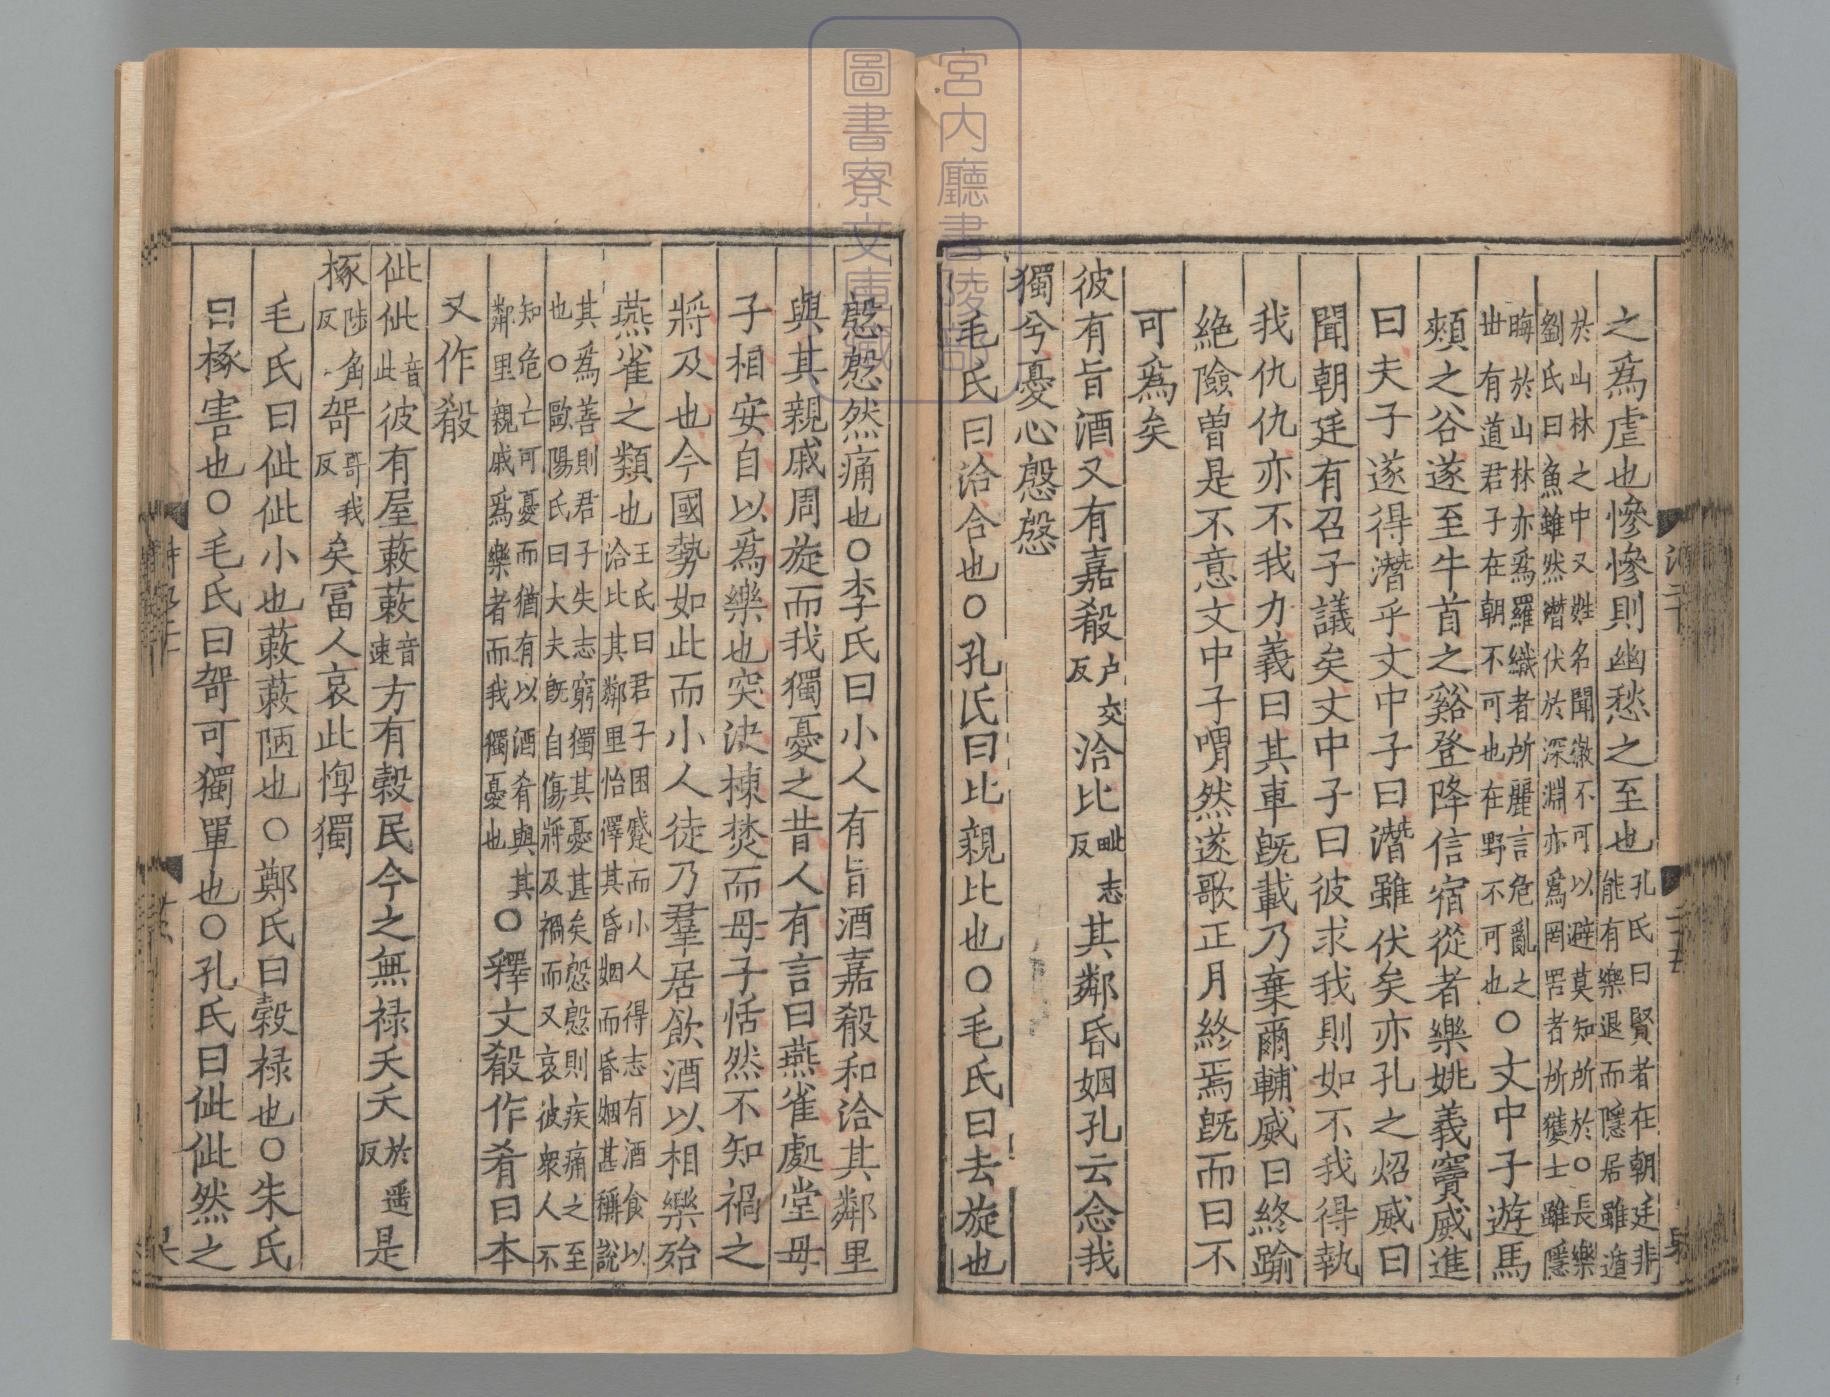 之爲虐也慘慘則幽愁之至也孔氏曰賢者在朝廷非
能有樂退而隱居雖遁
於山林之中又姓名聞徹不可以避莫知所於○長樂
劉氏曰魚雖然潛伏於深淵亦爲罔罟者所獲士雖隱
晦於山林亦爲羅織者所麗言危亂之
世有道君子在朝不可也在野不可也○文中子遊馬
頰之谷遂至牛首之谿登降信宿從者樂姚義竇威進
曰夫子遂得潛乎文中子曰潛雖伏矣亦孔之炤威曰
聞朝廷有召子議矣文中子曰彼求我則如不我得執
我仇仇亦不我力義曰其車旣載乃棄爾輔威曰終踰
絶險曾是不意文中子喟然遂歌正月終焉旣而曰不
可爲矣
彼有旨酒又有嘉殽户交反洽比毗志反其鄰昏姻孔云念我
獨兮憂心慇慇
毛氏曰洽合也○孔氏曰比親比也○毛氏曰云旋也
慇慇然痛也○李氏曰小人有旨酒嘉殽和洽其鄰里
與其親戚周旋而我獨憂之昔人有言曰燕雀處堂母
子相安自以爲樂也突決棟焚而母子恬然不知禍之
將及也今國勢如此而小人徒乃羣居飲酒以相樂殆
燕雀之類也王氏曰君子困蹙而小人得志有酒食以
洽比其鄰里怡懌其昏姻而昏姻甚稱說
其爲善則君子失志窮獨其憂甚矣慇慇則疾痛之至
也○歐陽氏曰大夫旣自傷將及禍而又哀彼衆人不
知危亡可憂而猶有以酒肴與其
鄰里親戚爲樂者而我獨憂也○釋文殽作肴曰本
又作殽
佌佌音此彼有屋蔌蔌音速方有穀民今之無禄夭夭於遥反是
椓陟角反哿哥我反矣冨人哀此惸獨
毛氏曰佌佌小也蔌蔌陋也○鄭氏曰穀禄也○朱氏
曰椓害也○毛氏曰哿可獨單也○孔氏曰佌佌然之
宮内廳書陵部
圖書寮文庫藏